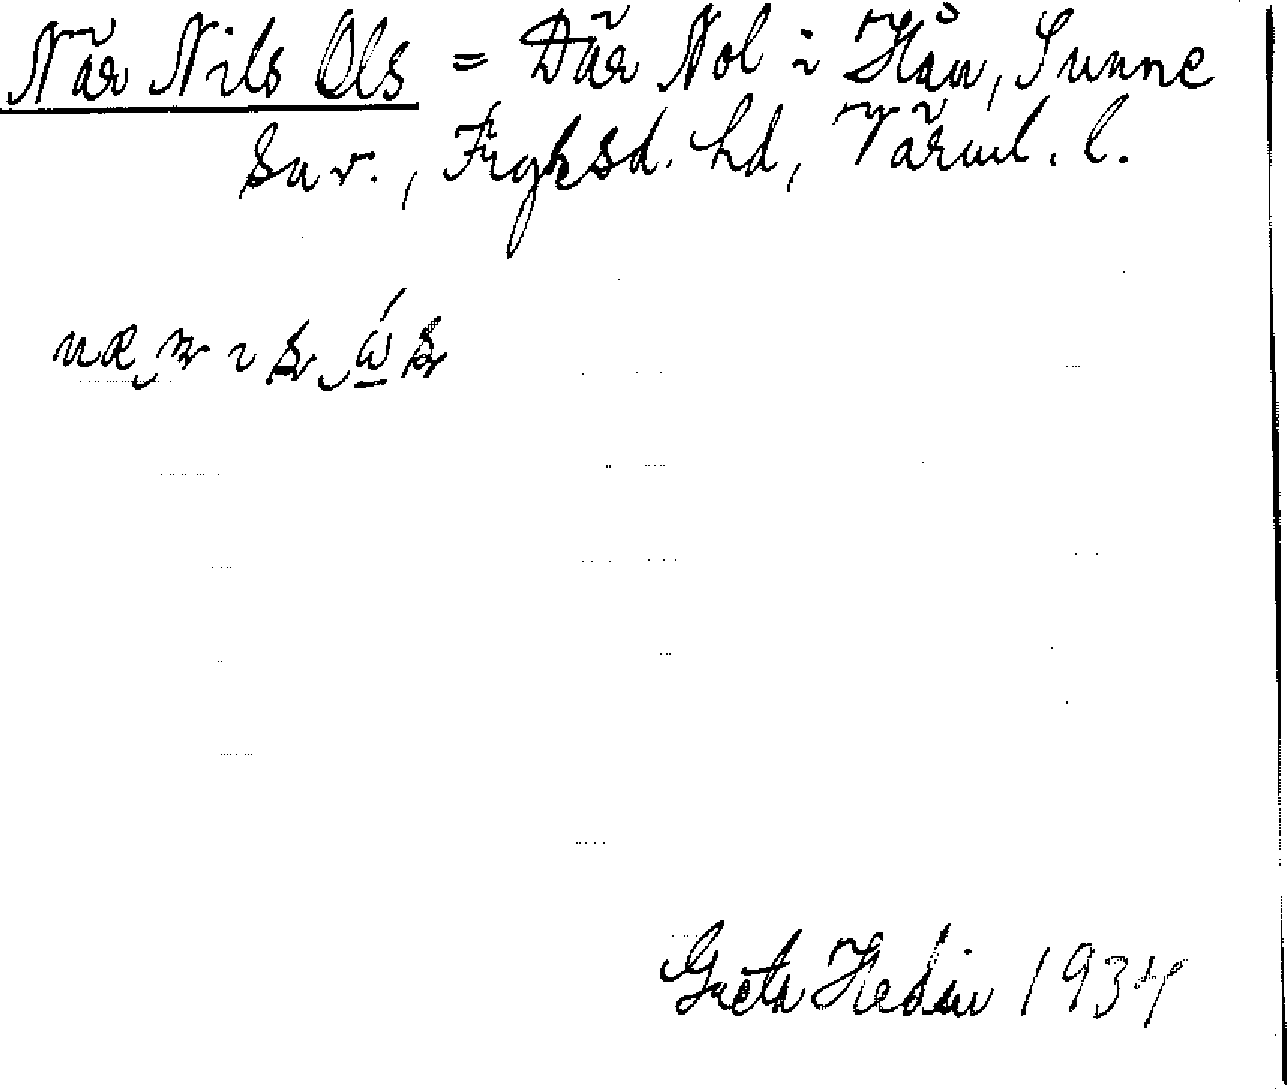 När Nils Ols = Där Nol i Hån, Sunne
sn v., Fryksd. hd, Värml. l.
Greta Hedin 1934